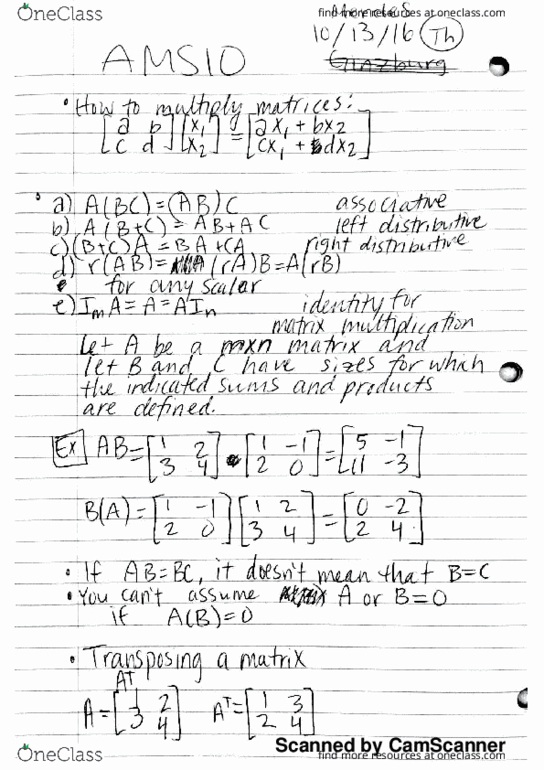 OneClass
find more resources at oneclass.com
10/13/16 Th
Ginzburg
AMS10
• How to multiply matrices:
[a b; c d] [x₁; x₂] = [ax₁ + bx2; cx₁ + dx2]
• a) A(BC)=(AB)C associative
b) A(B+C) = AB+AC left distributive
c) (B+C)A=BA+CA right distributive
d) r(AB)= (rA)B=A(rB)
• for any scalar
e) IₘA=A=AIₙ identity for
matrix multiplication
Let A be a mxn matrix and
let B and C have sizes for which
the indicated sums and products
are defined.
Ex AB=[1 2; 3 4] • [1 -1; 2 0]=[5 -1; 11 -3]
B(A)=[1 -1; 2 0] [1 2; 3 4]=[0 -2; 2 4]
• If AB=BC, it doesn't mean that B=C
• You can't assume A or B=0
if A(B)=0
• Transposing a matrix
Aᵀ
A=[1 2; 3 4] Aᵀ=[1 3; 2 4]
Scanned by CamScanner
OneClass
find more resources at oneclass.com